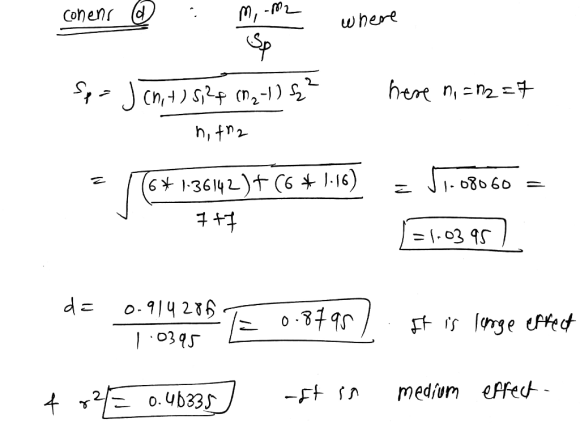 conens (d) : m₁ - m₂ / Sp where
Sp = √((n₁-1) S₁² + (n₂-1) S₂² / n₁+n₂) here n₁ = n₂ = 7
= √((6 * 1.36142) + (6 * 1.16) / 7+7) = √1.08060 =
= 1.0395
d = 0.914286 / 1.0395 = 0.8795 It is large effect
& r² = 0.40335 - It is medium effect -